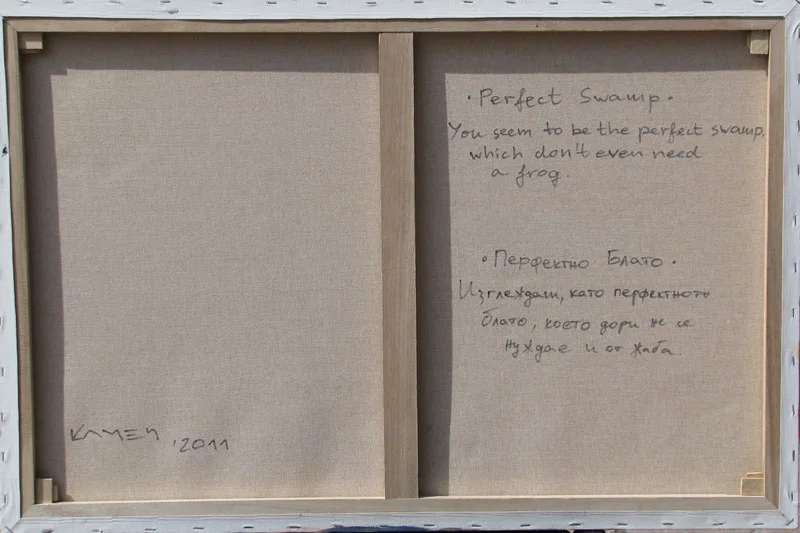 • Perfect Swamp •
You seem to be the perfect swamp,
which don't even need
a frog.
• Перфектно Блато •
Изглеждаш, като перфектното
блато, което дори не се
нуждае и от жаба.
КАМЕН , 2011